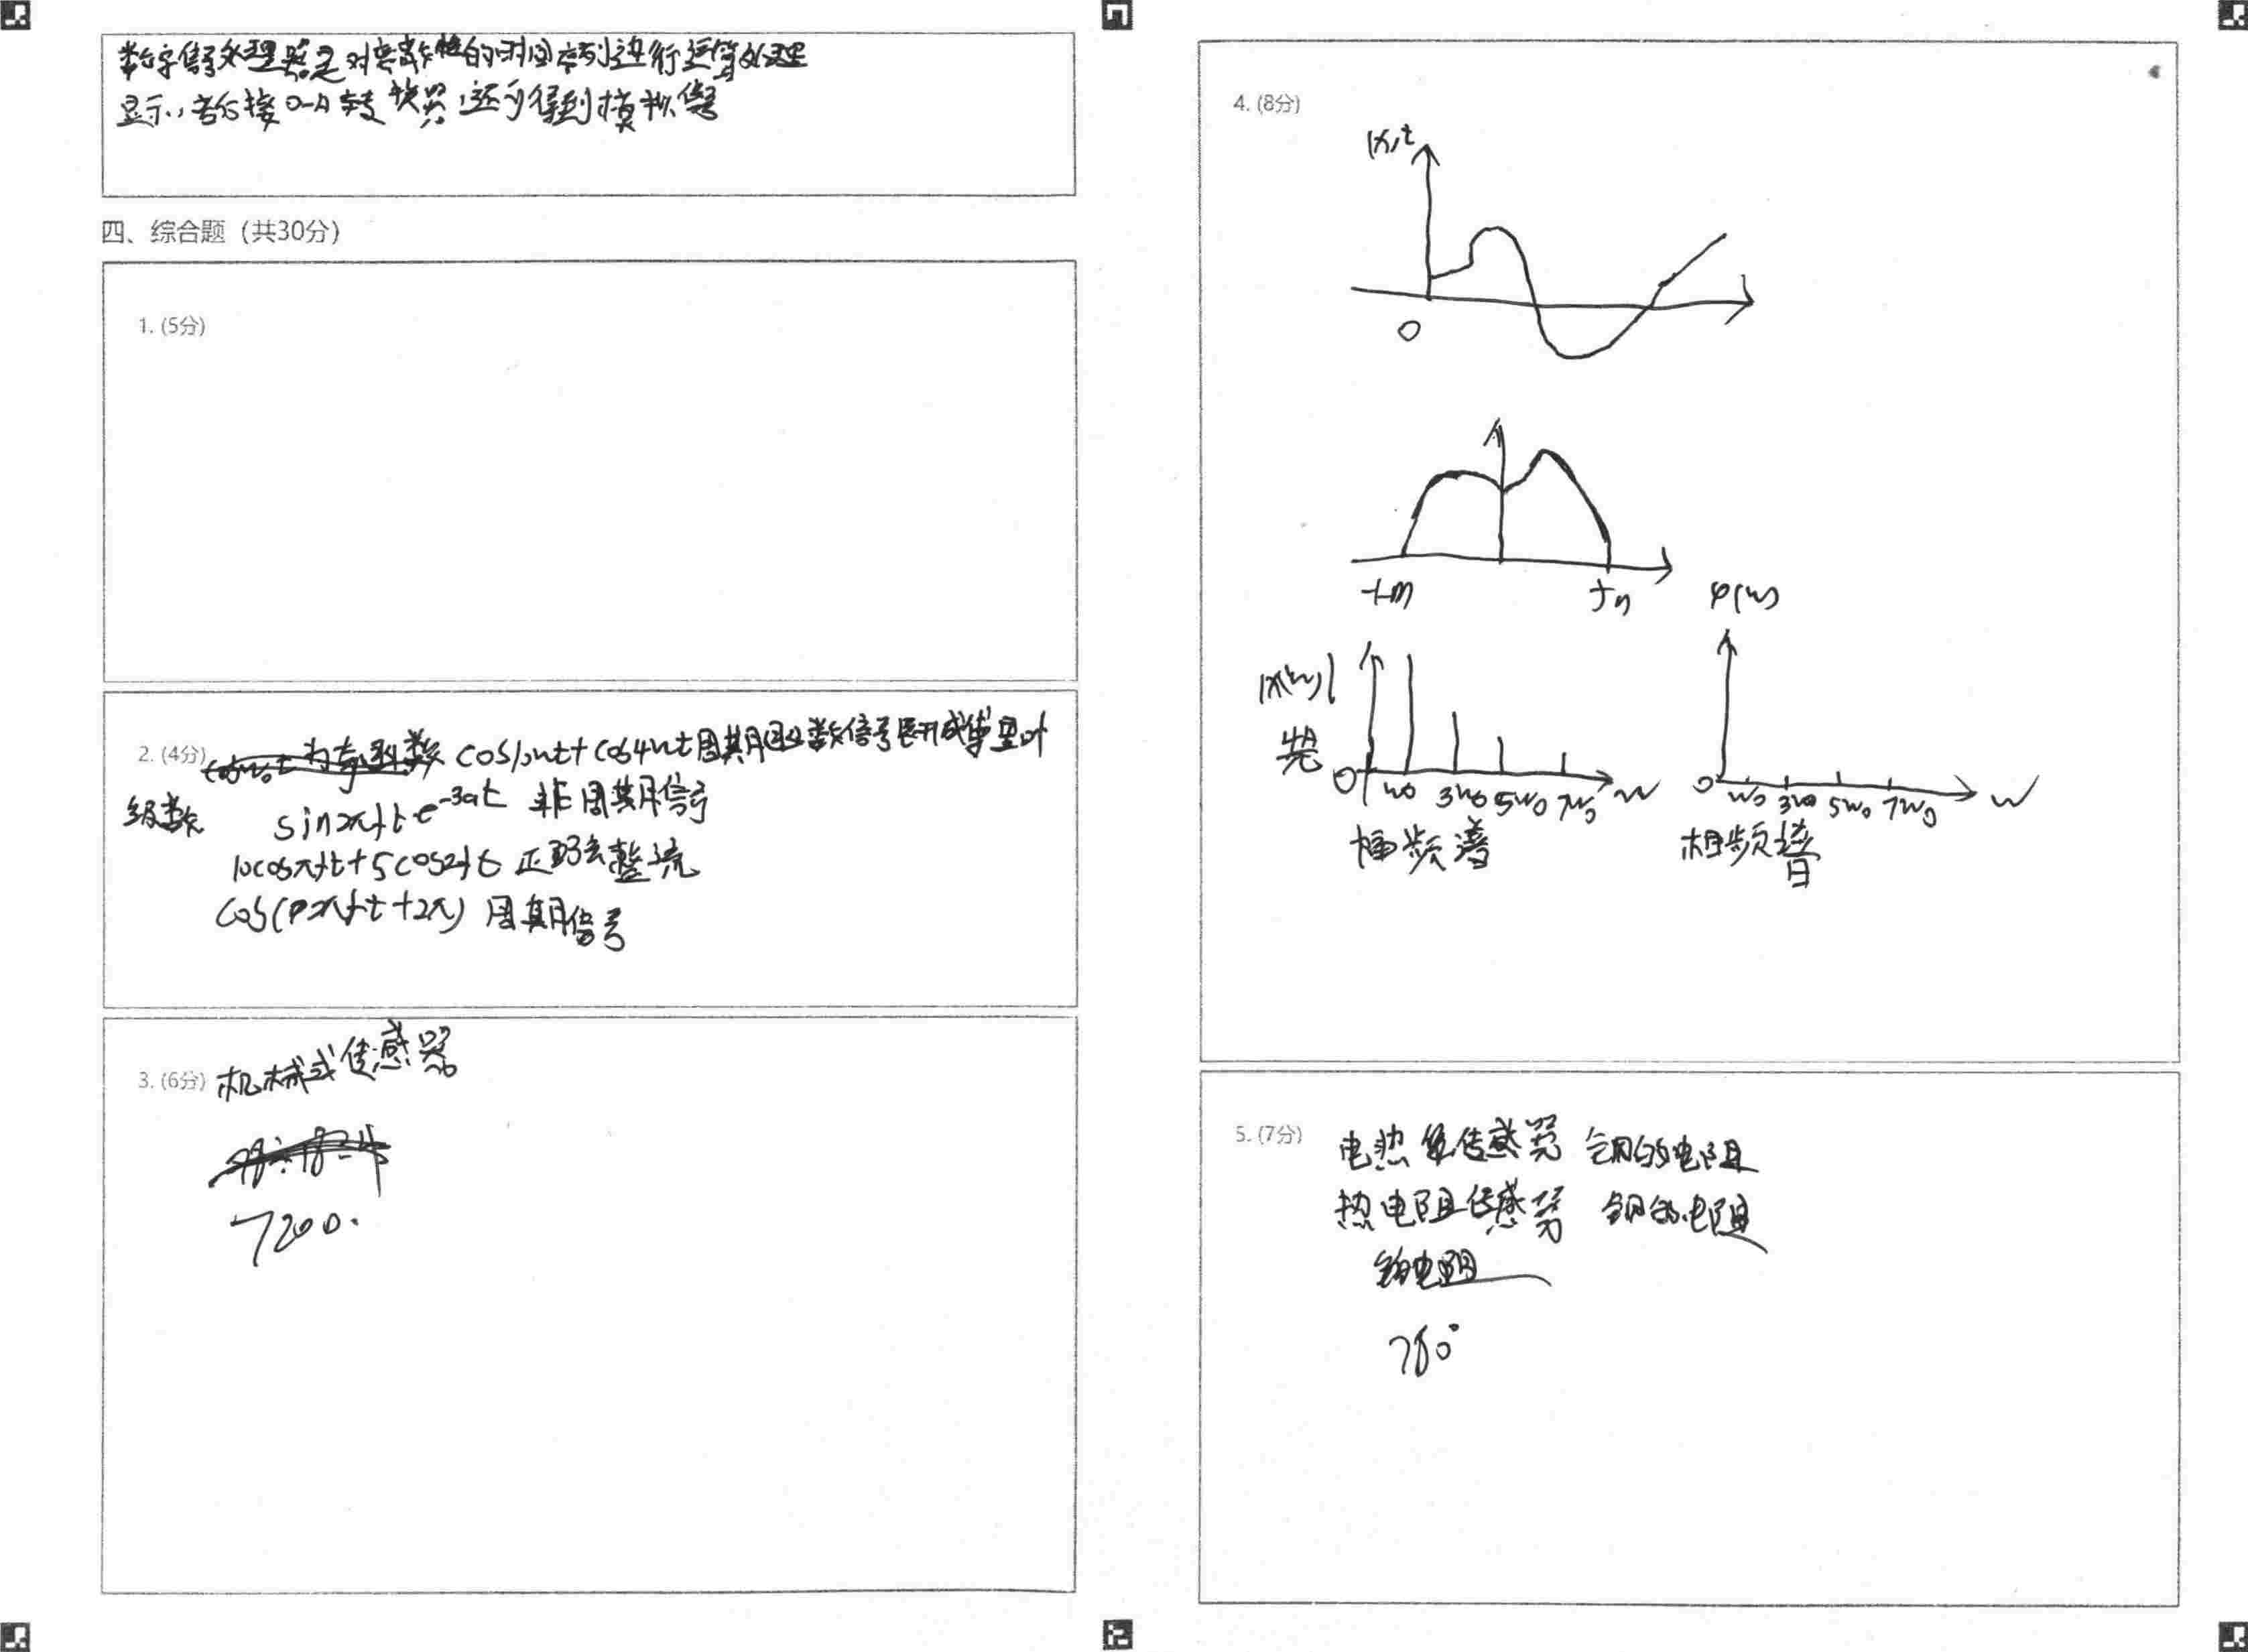 数字信号处理器是对离散的时间序列进行运算处理
显示,若后接D-A转换器,还可得到模拟信号
四、综合题（共30分）
1. (5分)
2. (4分) cos10πt+cos4πt周期函数信号展开成傅里叶
级数
sin2πft·e-3at 非周期信号
10cosπft+5cos2ft 正弦整流
cos( 2πft+2π) 周期信号
3. (6分) 机械式传感器
7200.
4. (8分)
0
φ(w)
|x(w)|
0 w0 3w0 5w0 7w0 w
0 w0 3w0 5w0 7w0 w
幅频谱
相频谱
5. (7分) 电热 传感器 的电阻
热电阻传感器 铜的电阻
铂电阻
780°